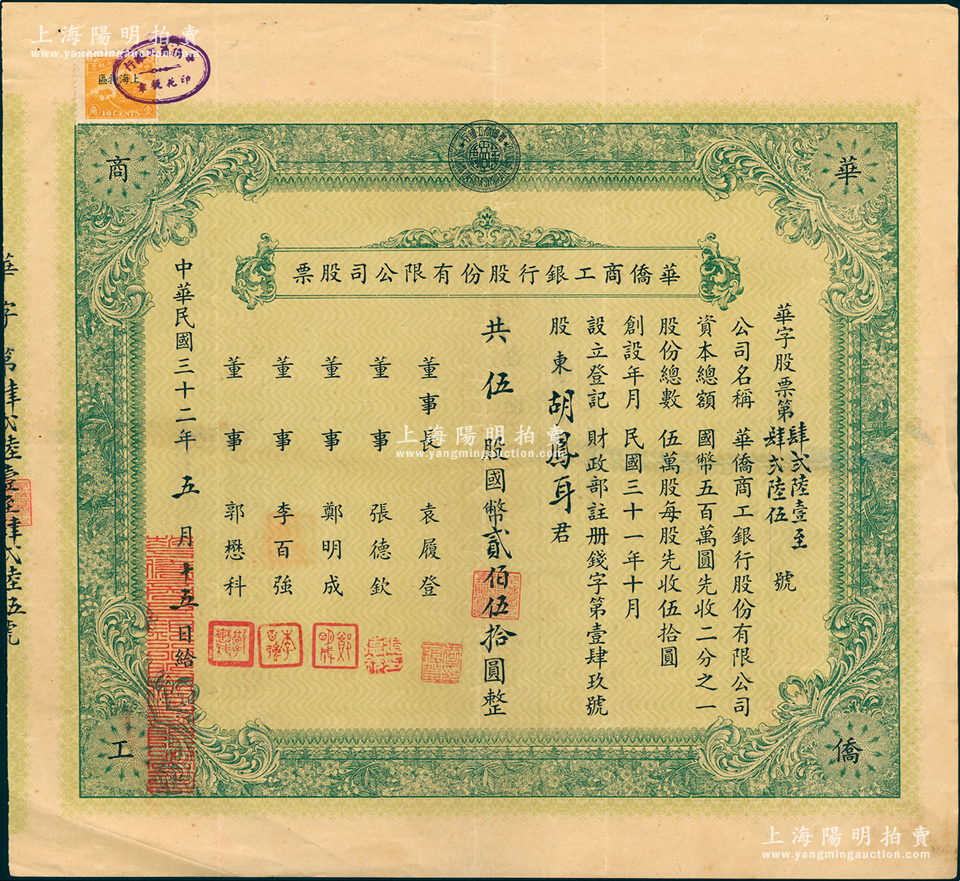 上海陽明拍賣
www.yangmingauction.com
上海 區
10 CENTS
印花
華
僑
商
工
華僑商工銀行股份有限公司股票
華字股票第肆貳陸壹至肆貳陸伍號
公司名稱 華僑商工銀行股份有限公司
資本總額 國幣五百萬圓先收二分之一
股份總數 伍萬股每股先收伍拾圓
創設年月 民國三十一年十月
設立登記 財政部註册錢字第壹肆玖號
股東 胡鳳耳 君
共伍股國幣貳佰伍拾圓整
董事長 袁履登
董事 張德欽
董事 鄭明成
董事 李百強
董事 郭懋科
中華民國三十二年五月十五日給
華字第肆貳陸壹至肆貳陸伍號
上海陽明拍賣
www.yangmingauction.com
上海陽明拍賣
www.yangmingauction.com